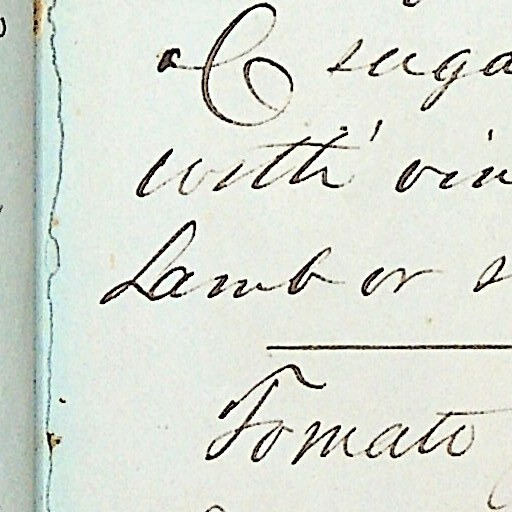 & suga
with vin
Lamb or s
Tomato